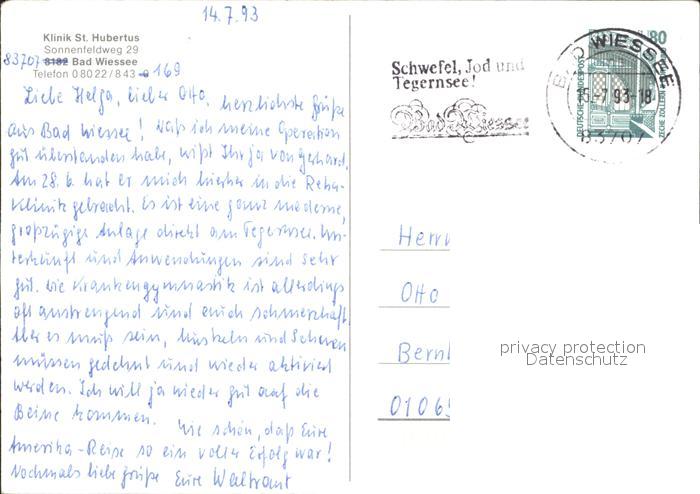 14.7.93
Klinik St. Hubertus
Sonnenfeldweg 29
83707 8182 Bad Wiessee
Telefon 08022/843-0 169
Liebe Helga, lieber Otto, herzlichste Grüße
aus Bad Wiessee! Daß ich meine Operation
gut überstanden habe, wißt Ihr ja von Gerhard.
Am 28.6. hat er mich hierher in die Reha-
Klinik gebracht. Es ist eine ganz moderne,
großzügige Anlage direkt am Tegernsee. Un-
terkünfte und Anwendungen sind sehr
gut. Die Krankengymnastik ist allerdings
oft anstrengend und auch schmerzhaft.
Aber es muß sein, Muskeln und Sehnen
müssen gedehnt und wieder aktiviert
werden. Ich will ja wieder gut auf die
Beine kommen. Wie schön, daß Eure
Amerika-Reise so ein voller Erfolg war!
Nochmals liebe Grüße Eure Waltraut
Schwefel, Jod und
Tegernsee!
Bad Wiessee
BAD WIESSEE
15.-7.93-18
83707
80
DEUTSCHE BUNDESPOST
ZECHE ZOLLERN
Herrn
Otto
Bern
0106
privacy protection
Datenschutz